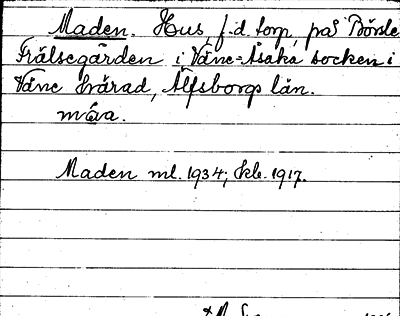 Maden. Hus, f.d. torp, på Börsle
Frälsegården i Väne-Åsaka socken i
Väne härad, Älfsborgs län.
måa.
Maden ml. 1934; kb. 1917.